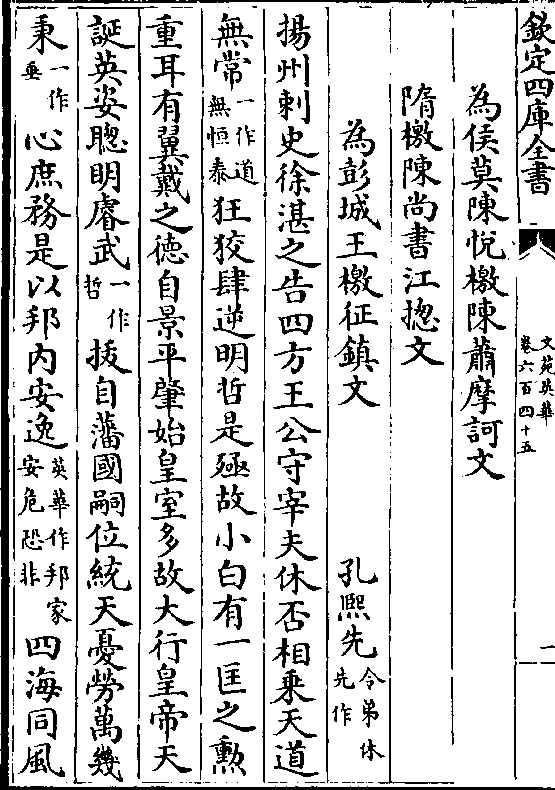 欽定四庫全書
文苑英華
卷六百四十五
一
為侯莫陳悅檄陳蕭摩訶文
隋檄陳尚書江揔文
為彭城王檄征鎮文 孔熙先令弟休先作
揚州刺史徐湛之告四方王公守宰夫休否相乗天道
無常一作道無恒泰狂狡肆逆明哲是殛故小白有一匡之勲
重耳有翼戴之德自景平肇始皇室多故大行皇帝天
誕英姿聰明睿武一作哲拔自藩國嗣位統天憂勞萬幾
秉一作垂心庶務是以邦内安逸英華作邦家安危恐非四海同風